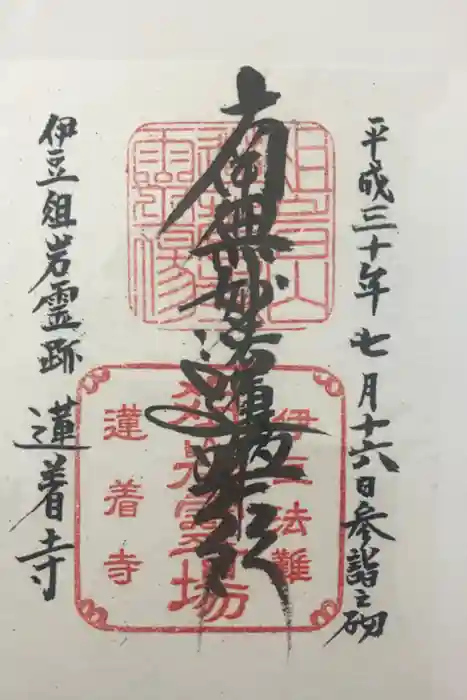 平成三十年七月十六日参詣之砌
南無妙法蓮華経
伊豆俎岩霊跡
蓮着寺
伊豆法難
俎岩霊場
蓮着寺